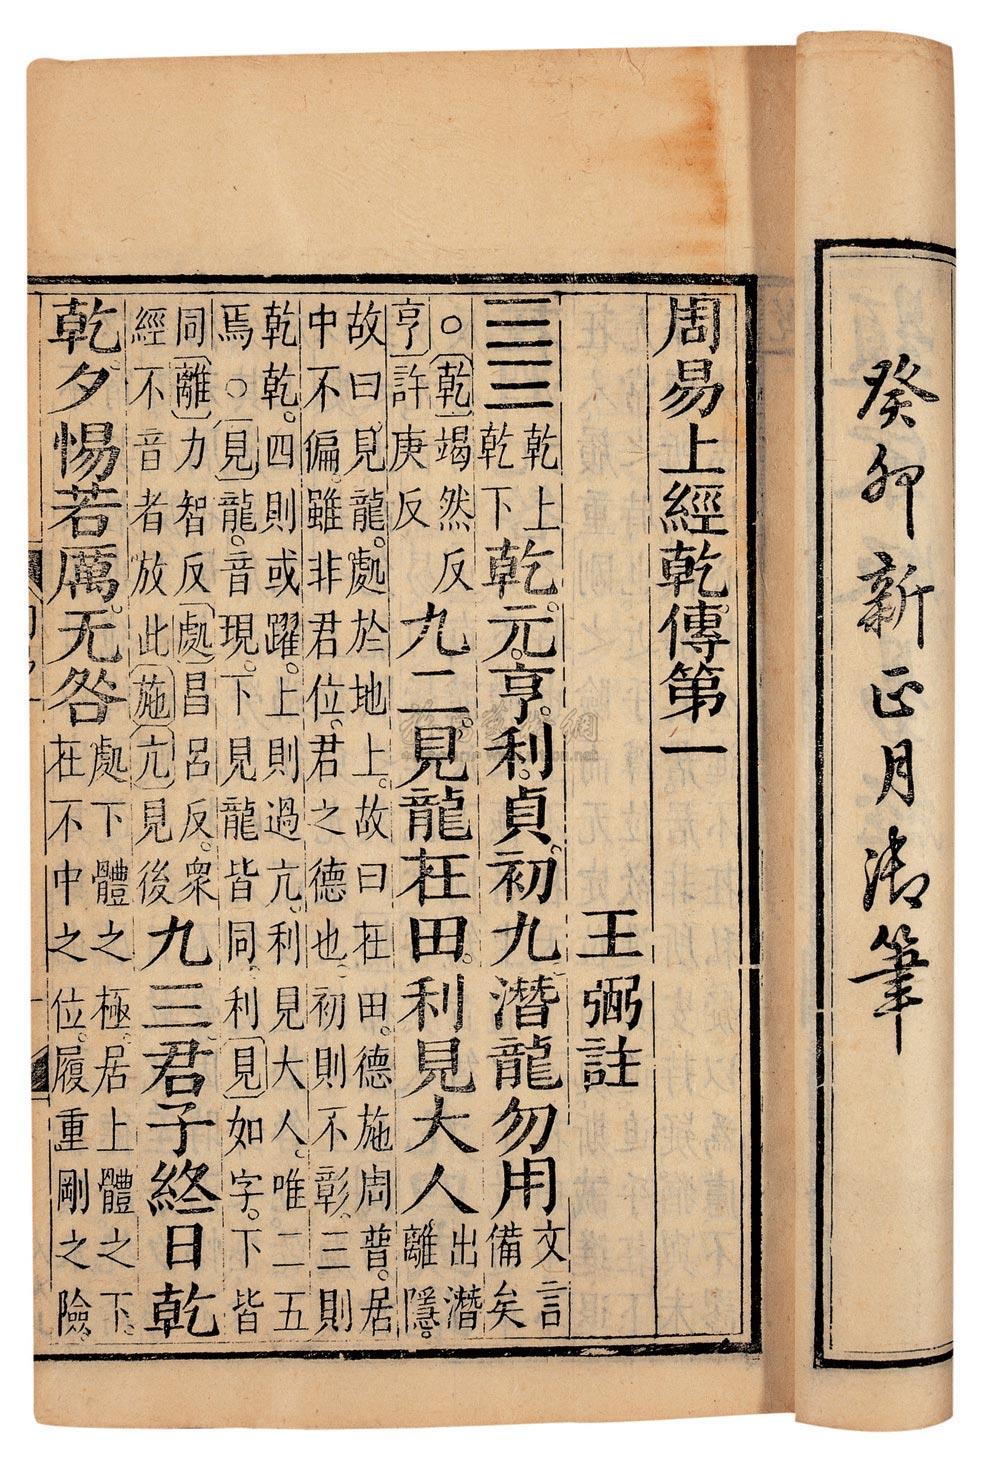 癸卯新正月御筆
周易上經乾傳第一
王弼註
䷀乾上乾下乾。元。亨。利。貞。初九潛龍勿用文言備矣
○乾竭然反亨許庚反九二。見龍在田。利見大人出潛離隱。
故曰見龍。處於地上。故曰在田。德施周普。居
中不偏。雖非君位。君之德也。初則不彰。三則
乾乾。四則或躍。上則過亢。利見大人。唯二五
焉。○見龍。音現。下見龍皆同。利見如字。下皆
同離力智反處昌呂反。衆經不音者放此施亢見後九三君子終日乾
乾夕惕若厲。无咎處下體之極。居上體之下。在不中之位。履重剛之險。